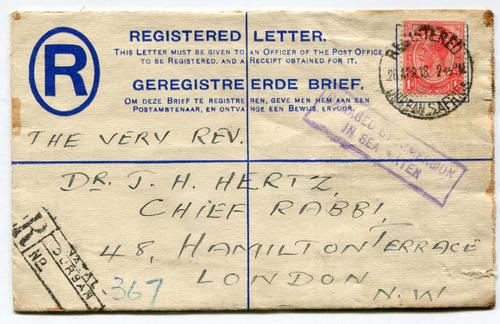 REGISTERED LETTER.
THIS LETTER MUST BE GIVEN TO AN OFFICER OF THE POST OFFICE
TO BE REGISTERED, AND A RECEIPT OBTAINED FOR IT.
R
GEREGISTREERDE BRIEF.
OM DEZE BRIEF TE REGISTREREN, GEVE MEN HEM AAN EEN
POSTAMBTENAAR, EN ONTVANGE EEN BEWIJS, ERVOOR.
REGISTERED
26 APR 18
DURBAN, S. AFRICA
DAMAGED BY IMMERSION
IN SEA WATER
THE VERY REV.
DR. J. H. HERTZ,
CHIEF RABBI,
48, HAMILTON TERRACE
LONDON
N.W
R
No.
NATAL
DURBAN
367